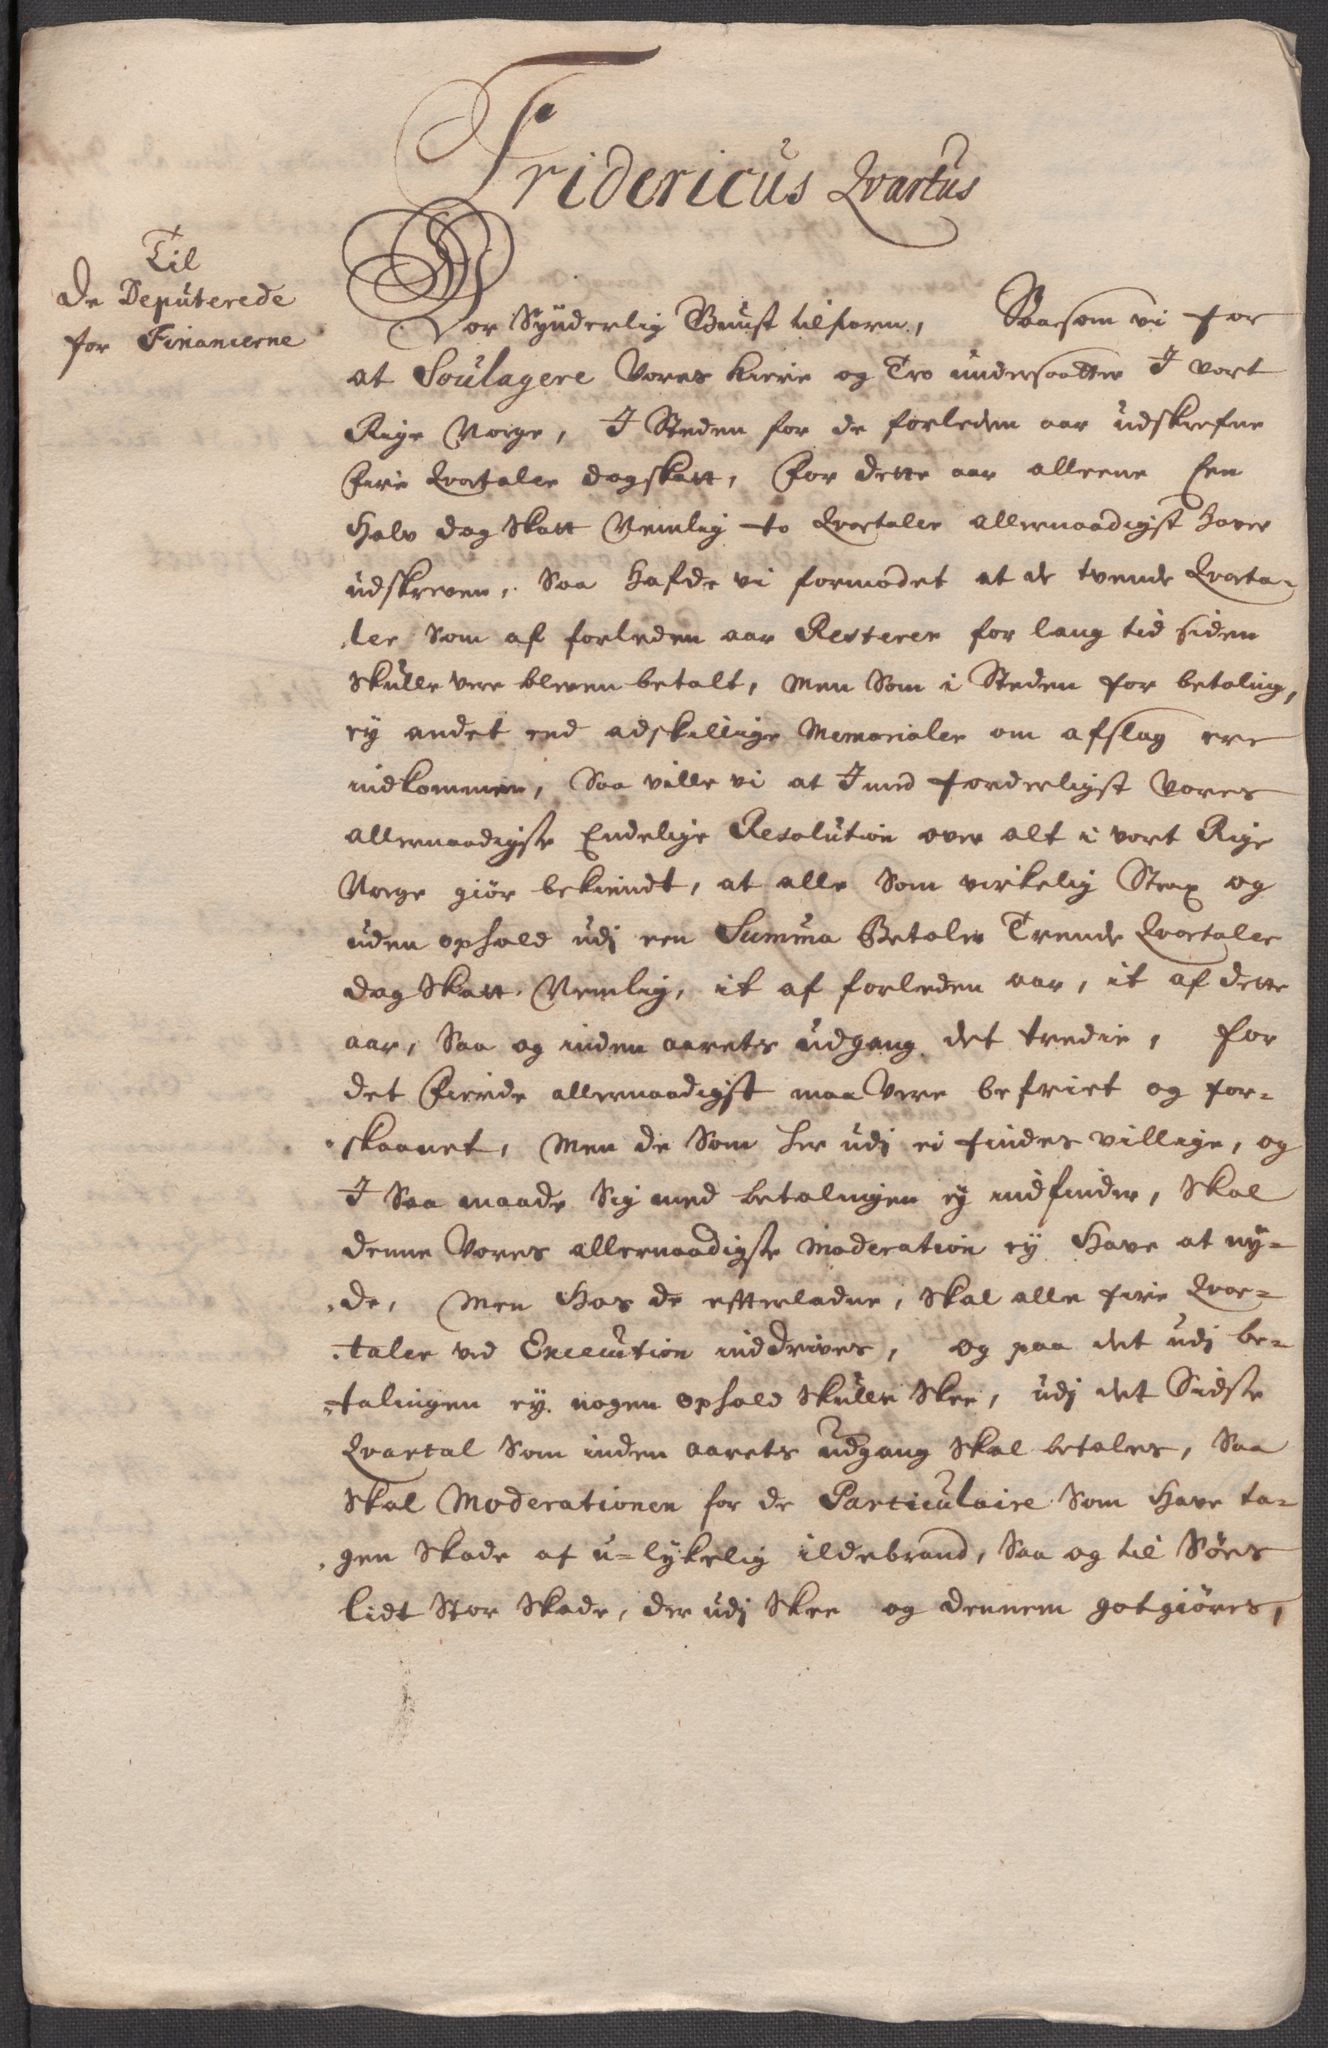 Fridericus Qvartus
Til
De Deputerede
for Financerne
Vor Synderlig Gunst tilforn, Saasom vi for
at Soulagere Vores kiere og Tro undersaatter I vort
Rige Norge, I Steden for de forleden aar udskrefne
fire Qvartaler dagskatt, for dette aar alleene Een
Halv dag Skatt Nemlig to Qvartaler allernaadigst haver
udskreven, Saa hafde vi formodet at de tvende Qvarta-
ler Som af forleden aar Resterer for lang tid siden
Skulle vere bleven betalt, Men Som i Steden for betaling,
ey andet end adskillige Memorialer om afslag ere
indkommen, Saa ville vi at I med forderligst Vores
allernaadigste Endelige Resolution over alt i vort Rige
Norge giør bekiendt, at alle Som virkelig Strax og
uden ophold udj een Summa Betaler Trende Qvartaler
dag Skatt, Nemlig, it af forleden aar, it af dette
aar, Saa og inden aarets udgang det tredie, for
det fierde allernaadigst maa Vere befriet og for-
skaanet, Men de Som her udj ei findes villige, og
I Saa maade Sig med betalingen ey indfinder, Skal
denne Vores allernaadigste Moderation ey Have at ny-
de, Men Hos de efterladne, Skal alle fire Qvar-
taler ved Execution inddrives, og paa det udj be-
talingen ey nogen ophold Skulle Skee, udj det Sidste
Qvartal Som inden aarets udgang Skal betales, Saa
Skal Moderationen for de Particulaire Som Have ta-
gen Skade af u-lykelig ildebrand, Saa og til Søes
lidt Stor Skade, der udj Skee og dennem gotgiøres,